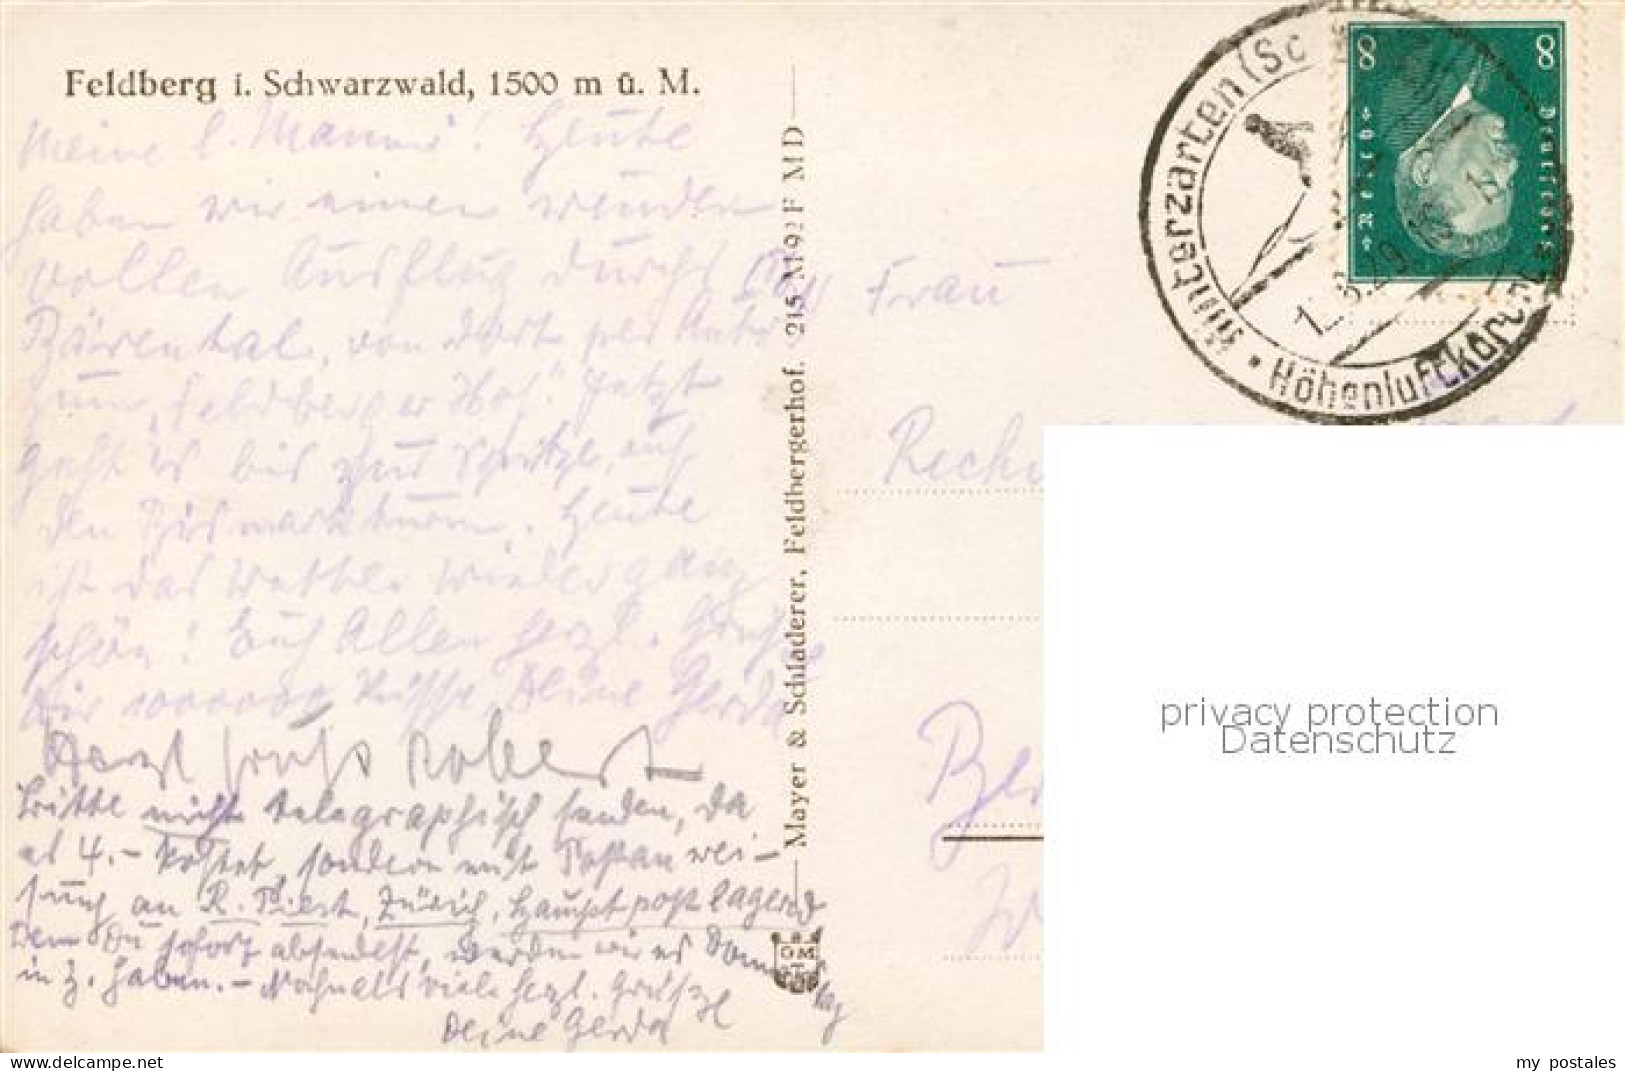 Feldberg i. Schwarzwald, 1500 m ü. M.
Meine l. Mammi! Heute
haben wir einen wunder-
vollen Ausflug durchs
Bärental, von dort per Auto
zum "Feldberger Hof." Jetzt
geht's bis zur Spitze, auf
den Bismarckturm. Heute
ist das Wetter wieder ganz
schön! Euch Allen herzl. Grüsse
Dir 1000000 Küsse Deine Gerda
Herzl Gruß Robert
Bitte nicht telegraphisch senden, da
es 4.- kostet, sondern mit Postanwei-
sung an R. Piest, Zürich, Hauptpostlagernd
Wenn Du sofort absendest, werden wir es
in Z. haben. - Nochmals viele herzl. Grüße
Deine Gerda
Mayer & Schladerer, Feldbergerhof. 215 M 92 F M D
GM
Frau
Hinterzarten (Sc
Höhenluftkurort
8
8
Deutsches
Reich
privacy protection
Datenschutz
www.delcampe.net
my_postales